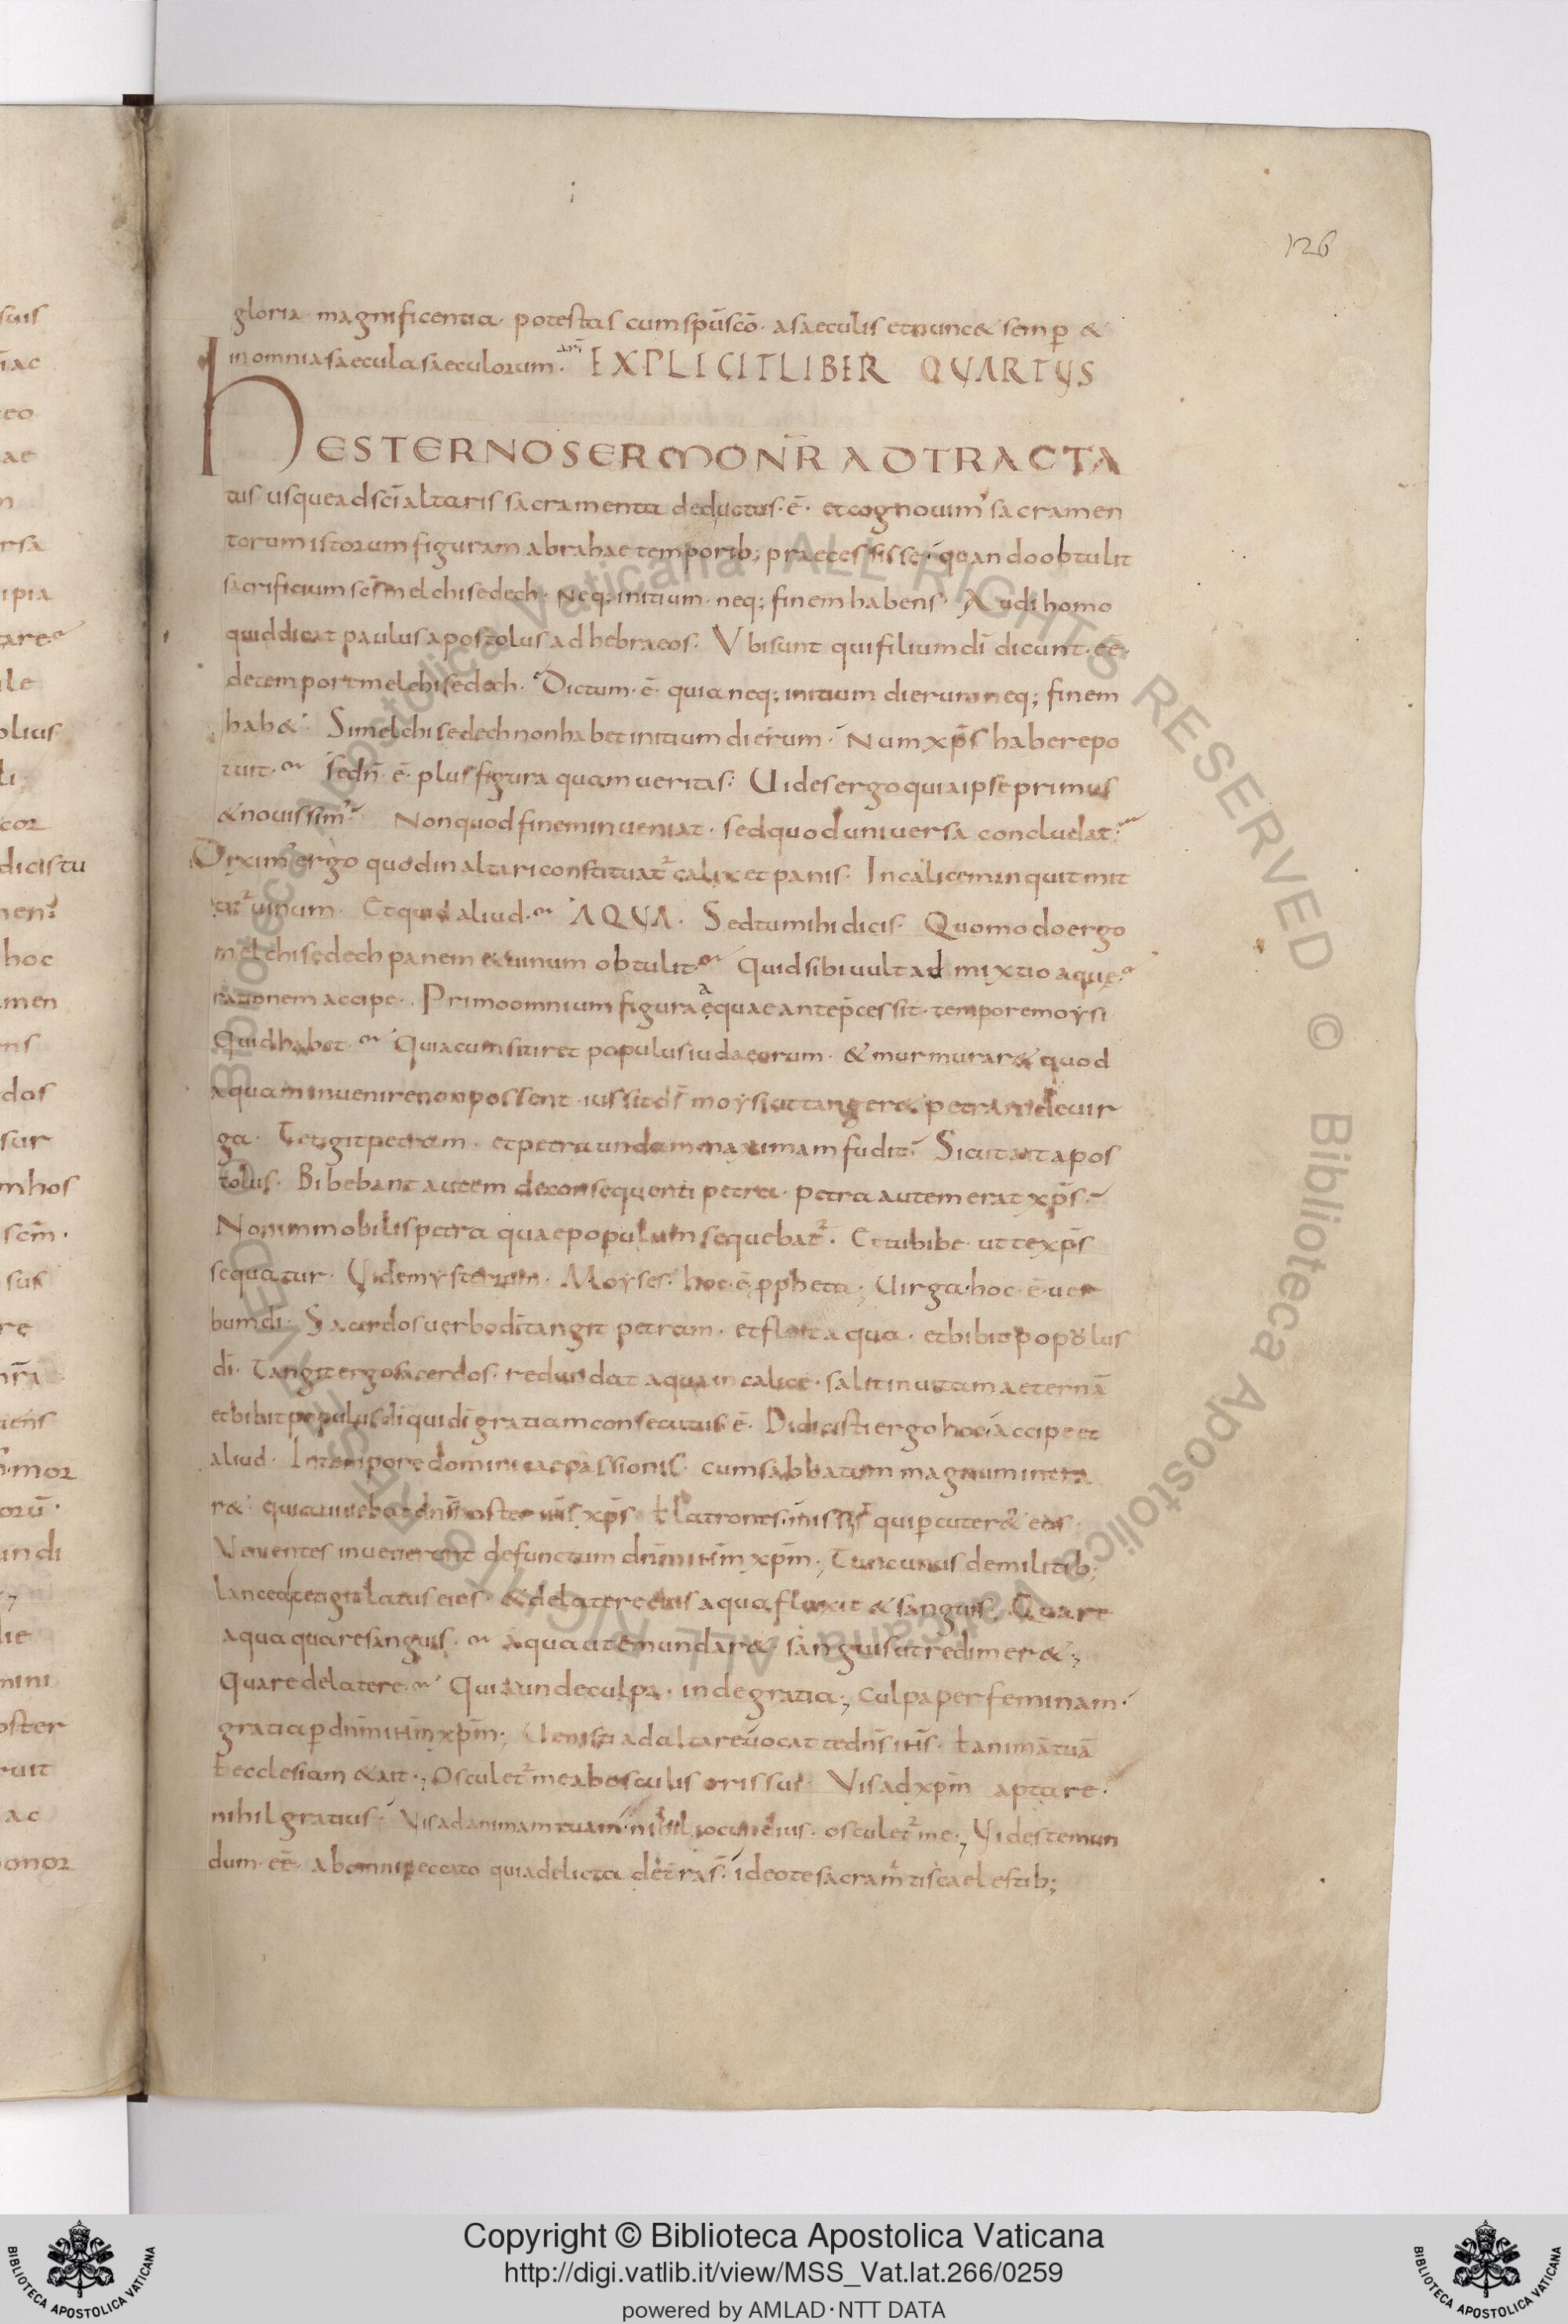 126
gloria· magnificentia· potestas cum spū scō· a saeculis et nunc & semp &
in omnia saecula saeculorum· am̄ EXPLICIT LIBER QUARTUS
HESTERNO SERMO NR̄ AD TRACTA
tus usque ad sc̄i altaris sacramenta deductus· ē· et cognouim' sacramen
torum istorum figuram abrahae temporib; praecessisse· quando obtulit
sacrificium sc̄s melchisedech· Neq; initium· neq; finem habens· Audi homo
quid dicat paulus apostolus ad hebraeos· Ubi sunt qui filium dī dicunt· eē·
de tempore melchisedech· Dictum· ē· quia neq; initium dierum neq; finem
hab&· Si melchisedech non habet initium dierum· Num xp̄s habere po
tuit· Sed n̄· ē· plus figura quam ueritas· Uides ergo quia ipse primus
& nouissim'· Non quod finem inueniat· sed quod uniuersa concludat·
Diximus ergo quod in altari constituat᷑ calix et panis· In calicem inquit mit
tit᷑ uinum· Et quid aliud· AQUA· Sed tu mihi dicis· Quomodo ergo
melchisedech panem & uinum obtulit· Quid sibi uult admixtio aquę·
rationem accipe· Primo omnium figura quae ante p̄cessit· tempore moysi
Quid habet· Quia cum sitiret populus iudaeorum· & murmurar& quod
aquam inuenire non possent· iussit dī moysi ut tanger& petram de uir
ga· Tetigit petram· et petra undam maximam fudit· Sicut ait apos
tolus· Bibebant autem de consequenti petra· petra autem erat xp̄s·
Non immobilis petra quae populum sequebat᷑· Et tu bibe· ut te xp̄s
sequatur· Uide mysterium· Moyses· hoc· ē· ppheta; Uirga· hoc· ē· uer
bum dī· Sacerdos uerbo dī tangit petram· et fluit aqua· et bibit populus
dī· Tangit ergo sacerdos· redundat aqua in calice· salit in uitam aeternā
et bibit populus dī qui dī gratiam consecutus ē· Didicisti ergo hoc· accipe et
aliud· In tempore dominicae passionis· cum sabbatum magnum insta
r&· quia uiuebat dn̄s noster iħs xp̄s· ł latrones· missi qui p̄cuter& eos·
Uenientes inuenerunt defunctum dn̄m iħm xp̄m; Tunc unus de militib;
lancea tetigit latus eius· & de latere eius aqua fluxit & sanguis· Quare
aqua quare sanguis· Aqua ut emundar& sanguis ut redimer&;
Quare de latere· Quia unde culpa· inde gratia; Culpa per feminam·
gratia p dn̄m iħm xp̄m; Uenisti ad altare uocat te dn̄s iħs· ł animā tuā
ł ecclesiam & ait; Osculet᷑ me ab osculis oris sui· Uis ad xp̄m aptare·
nihil gratius· Uis ad animam tuam· nihil iocundius· osculet᷑ me; Uides te mun
dum· eē· ab omni peccato quia delicta det̄ra s̄· ideo te sacram̄tis caelestib;
Copyright © Biblioteca Apostolica Vaticana
http://digi.vatlib.it/view/MSS_Vat.lat.266/0259
powered by AMLAD·NTT DATA
BIBLIOTECA APOSTOLICA VATICANA
BIBLIOTECA APOSTOLICA VATICANA
Biblioteca Apostolica Vaticana ALL RIGHTS RESERVED © Biblioteca Apostolica Vaticana ALL RIGHTS RESERVED ©